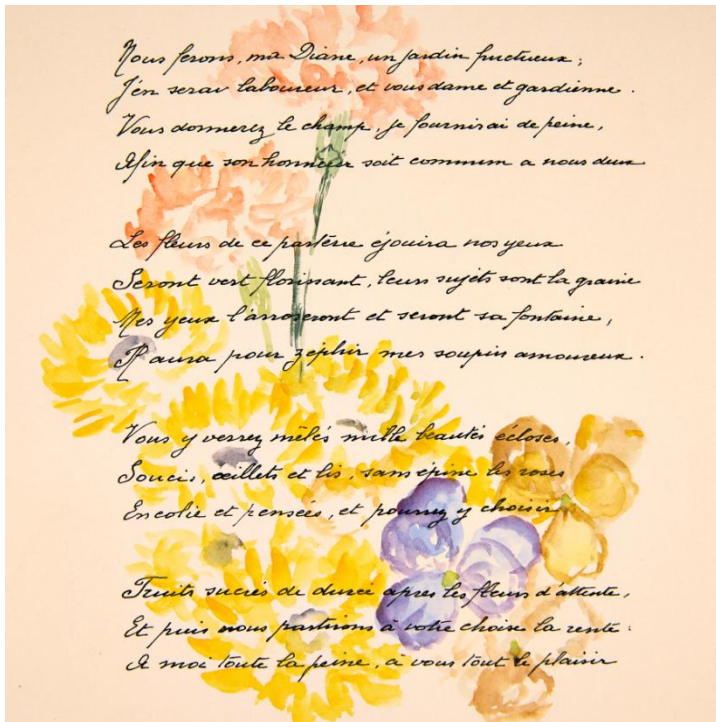 Nous ferons, ma Diane, un jardin fructueux ;
J'en serav laboureur, et vous dame et gardienne .
Vous donnerez le champ, je fournirai de peine,
Afin que son honneur soit commun a nous deux
Les fleurs de ce parterre éjouira nos yeux
Seront vert florissant, leurs sujets sont la graine
Mes yeux l'arroseront et seront sa fontaine,
Il aura pour zéphir mes soupirs amoureux .
Vous y verrez mêlés mille beautés écloses,
Soucis, œillets et lis, sans épine les roses
Encolie et pensées, et pourrez y choisir
Fruits sucrés de durée apres les fleurs d'attente,
Et puis nous partirons à votre choix la rente :
A moi toute la peine, à vous tout le plaisir